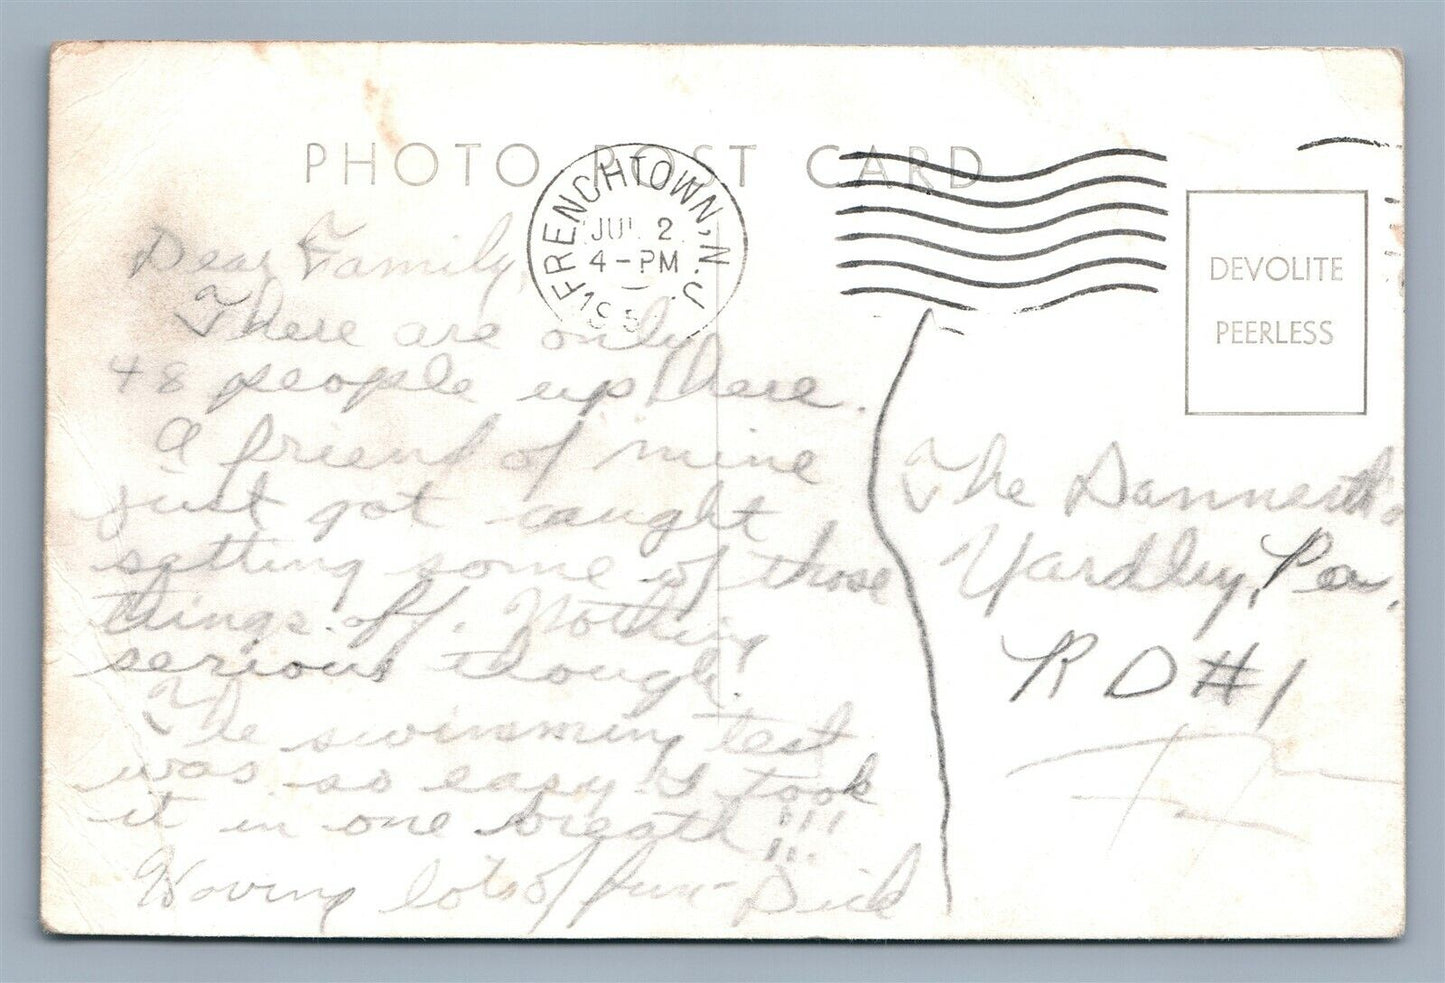 PHOTO POST CARD
FRENCHTOWN, N. J.
JUL 2
4-PM
195
DEVOLITE
PEERLESS
Dear Family,
There are only
48 people up here.
A friend of mine
just got caught
setting some of those
things off. Nothing
serious though.
The swimming test
was so easy I took
it in one breath!!!
Having lots of fun - Dick
The Dannerth's
Yardley, Pa,
RD #1